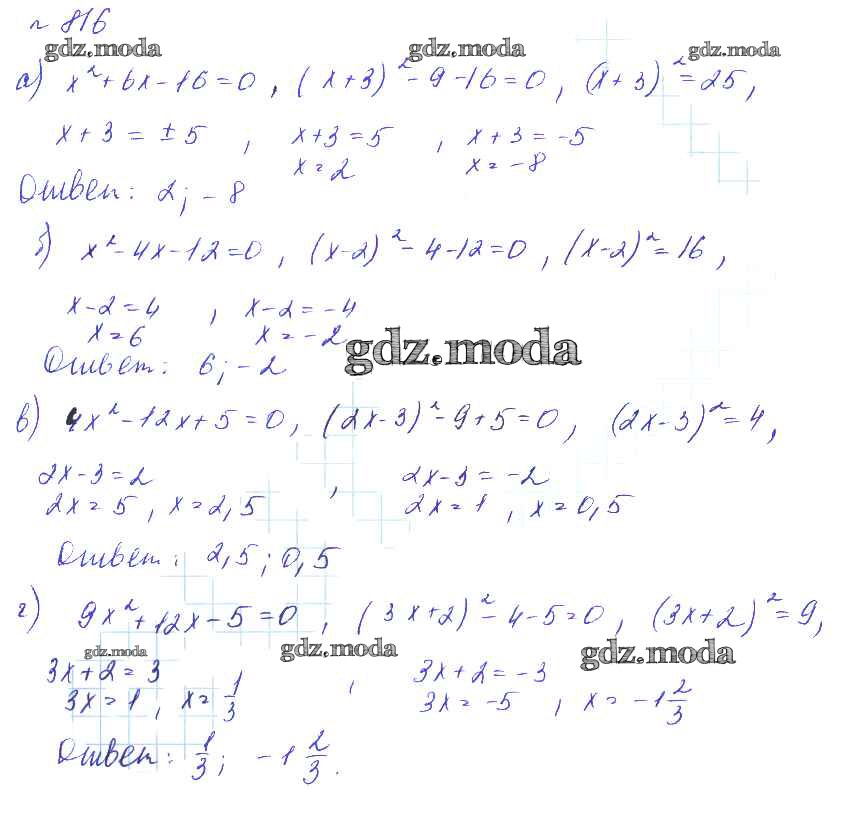 № 816
gdz.moda gdz.moda gdz.moda
а) x² + 6x - 16 = 0, (x+3)² - 9 - 16 = 0, (x+3)² = 25,
x + 3 = ± 5, x+3 = 5, x+3 = -5
x = 2 x = -8
Ответ: 2; -8
б) x² - 4x - 12 = 0, (x-2)² - 4 - 12 = 0, (x-2)² = 16,
x - 2 = 4, x - 2 = -4
x = 6 x = -2
gdz.moda
Ответ: 6; -2
в) 4x² - 12x + 5 = 0, (2x-3)² - 9 + 5 = 0, (2x-3)² = 4,
2x - 3 = 2, 2x - 3 = -2
2x = 5, x = 2,5 2x = 1, x = 0,5
Ответ: 2,5; 0,5
г) 9x² + 12x - 5 = 0, (3x+2)² - 4 - 5 = 0, (3x+2)² = 9,
gdz.moda gdz.moda gdz.moda
3x + 2 = 3, 3x + 2 = -3
3x = 1, x = 1/3 3x = -5, x = -1 2/3
Ответ: 1/3; -1 2/3.